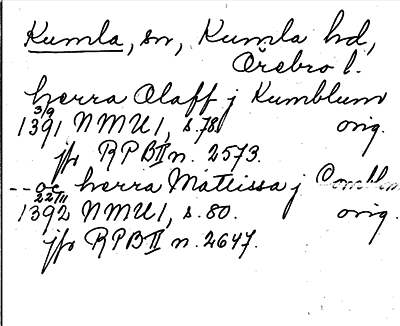 Kumla, sn, Kumla hd,
Örebro l.
herra Olaff j Kumblum
3/9
1391 NMU1, s. 78. orig.
jfr RPB II n. 2573.
-- oc herra Matissa j
22/11
1392 NMU1, s. 80. orig.
jfr RPB II n. 2647.